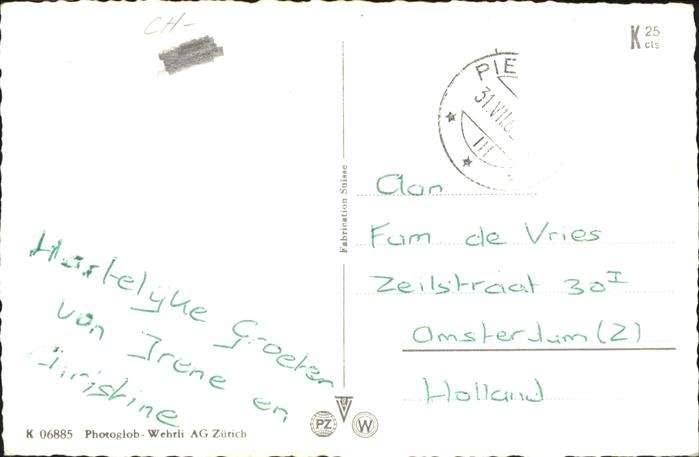 CH-
K 25 cts
PIE
31.VII.6
Fabrication Suisse
Aan
Fam de Vries
Zeilstraat 30 I
Amsterdam (Z)
Holland
Hartelyke Groeten
van Irene en
Christine
K 06885 Photoglob-Wehrli AG Zürich
PZ W